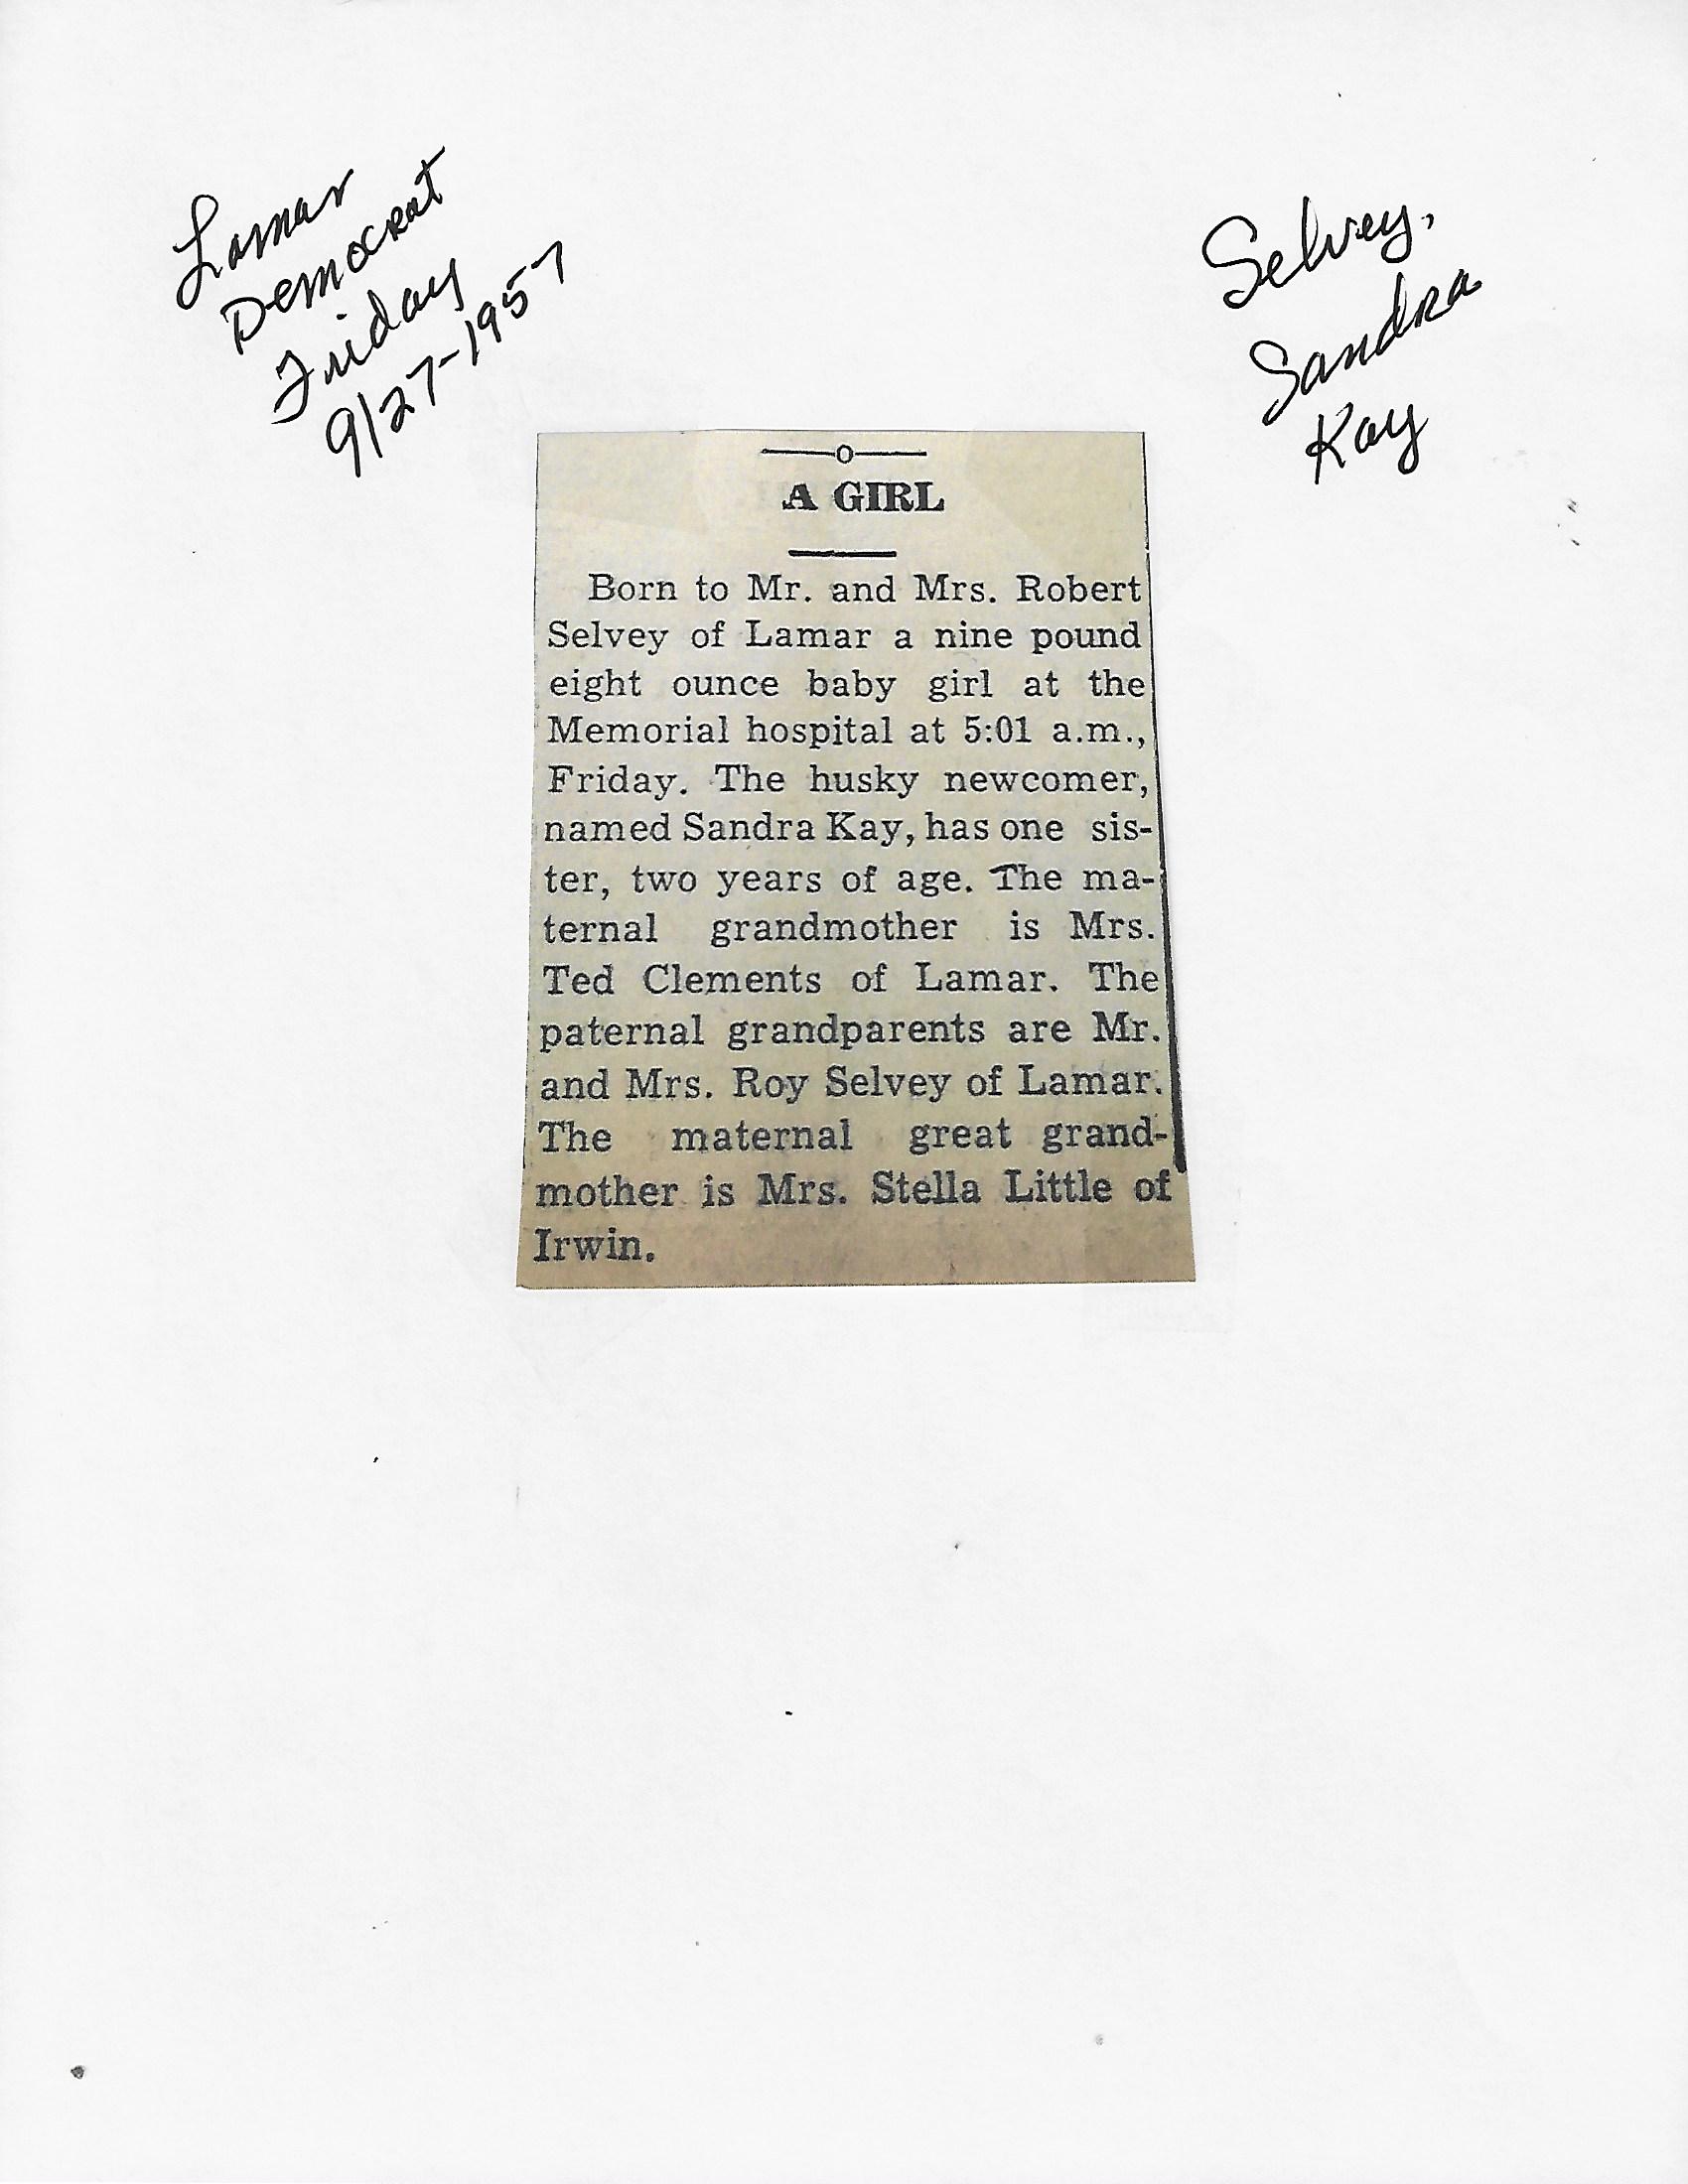 Lamar
Democrat
Friday
9/27-1957
Selvey,
Sandra
Kay
A GIRL
Born to Mr. and Mrs. Robert
Selvey of Lamar a nine pound
eight ounce baby girl at the
Memorial hospital at 5:01 a.m.,
Friday. The husky newcomer,
named Sandra Kay, has one sis-
ter, two years of age. The ma-
ternal grandmother is Mrs.
Ted Clements of Lamar. The
paternal grandparents are Mr.
and Mrs. Roy Selvey of Lamar.
The maternal great grand-
mother is Mrs. Stella Little of
Irwin.